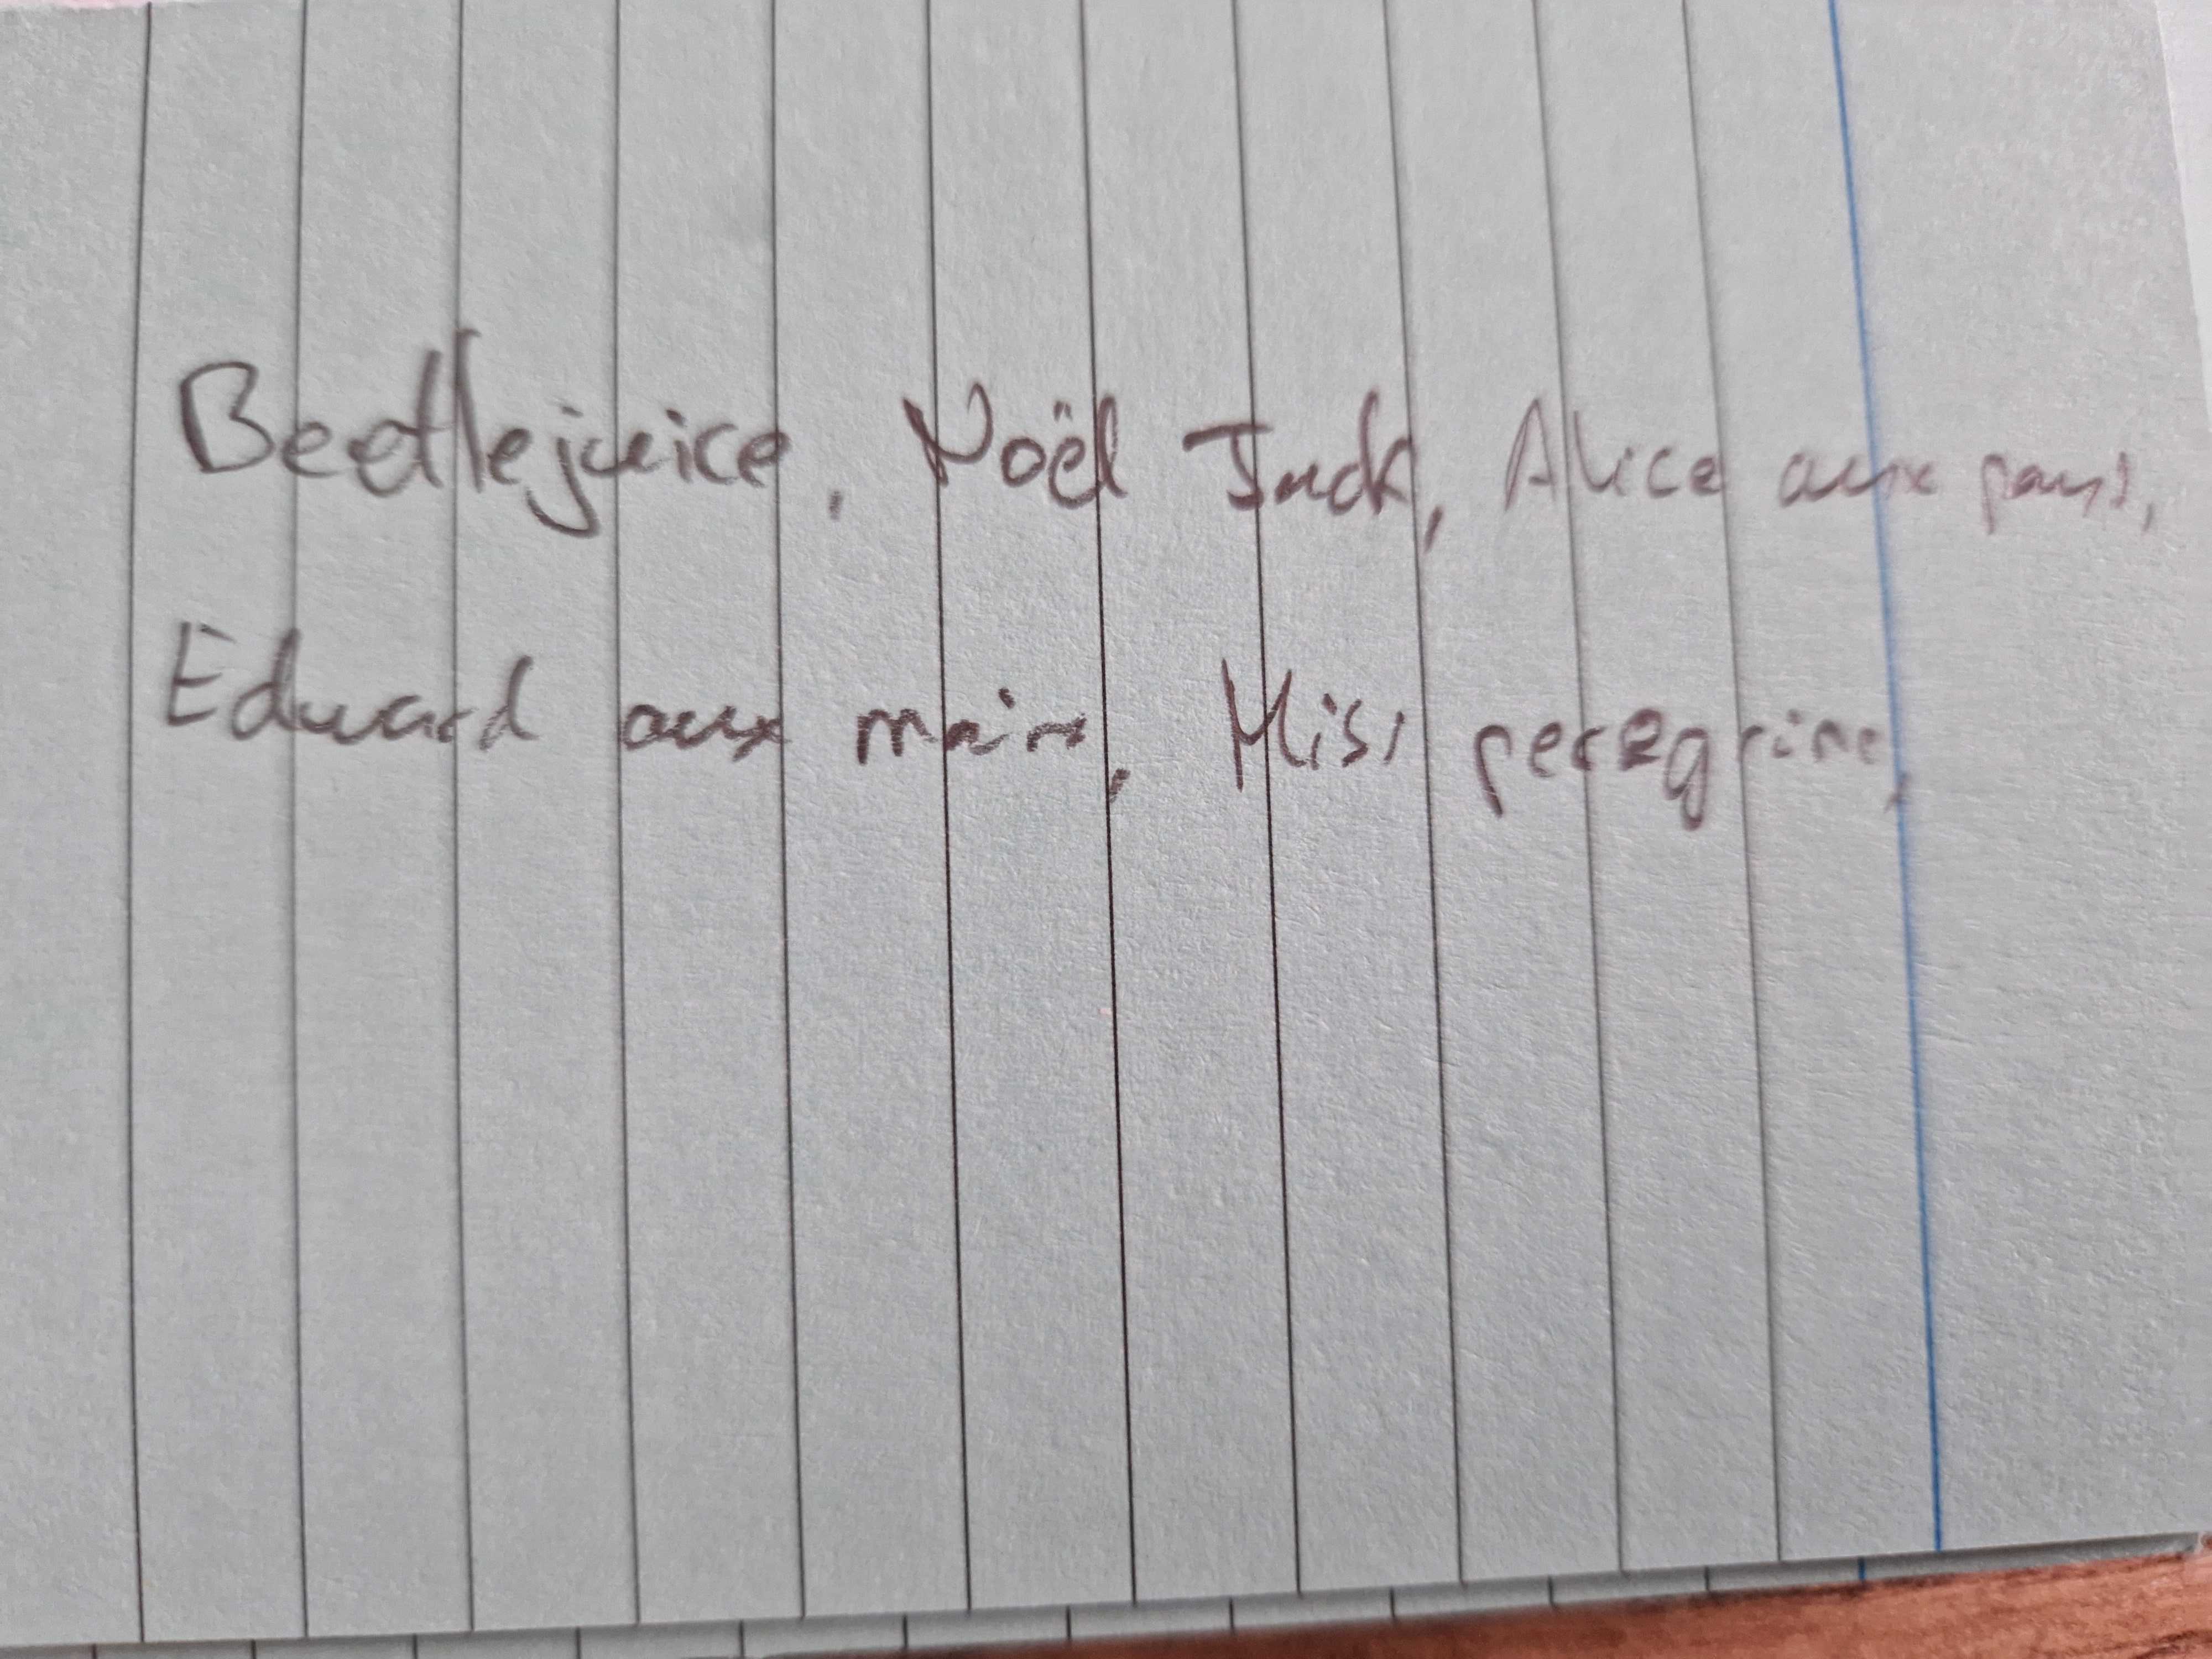 Beetlejuice, Noël Jack, Alice aux pays,
Edward aux mains, Miss peregrine,